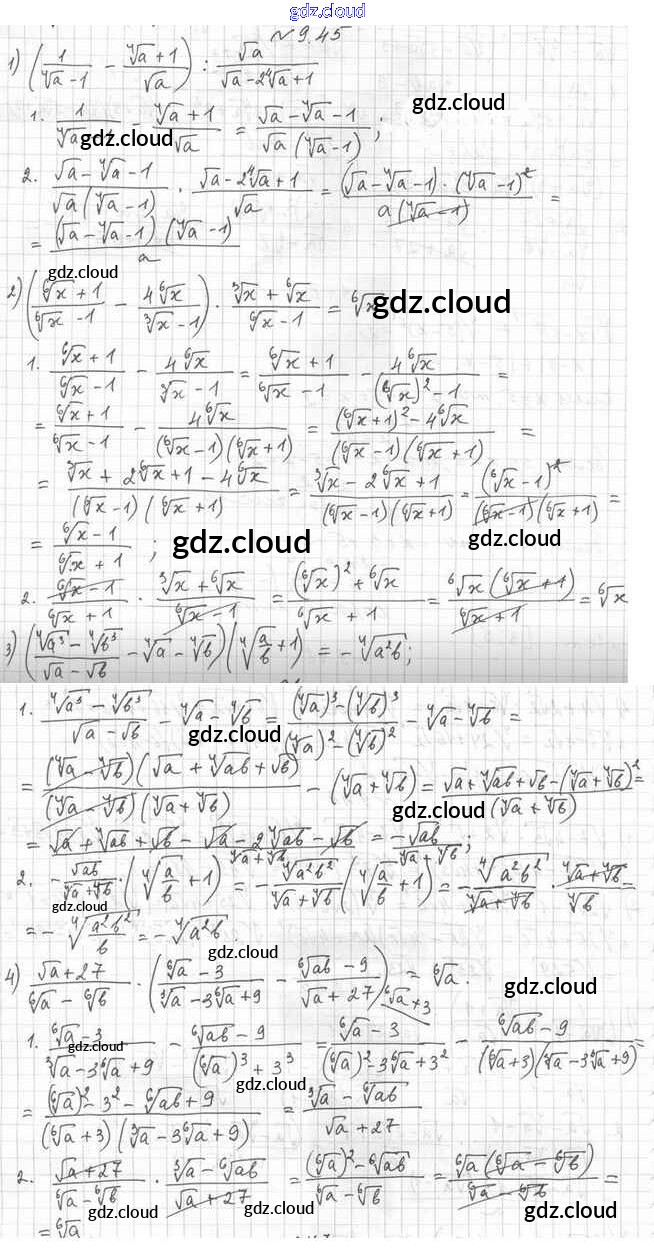 gdz.cloud
№ 9.45
1) (1/(⁴√a − 1) − (⁴√a + 1)/√a) : √a/(√a − 2⁴√a + 1)
gdz.cloud
1. 1/⁴√a − (⁴√a + 1)/√a = (√a − ⁴√a − 1)/(√a (⁴√a − 1)) ;
gdz.cloud
2. (√a − ⁴√a − 1)/(√a (⁴√a − 1)) · (√a − 2⁴√a + 1)/√a = ((√a − ⁴√a − 1) · (⁴√a − 1)²)/(a (⁴√a − 1)) =
= ((√a − ⁴√a − 1) (⁴√a − 1))/a
gdz.cloud
2) ((⁶√x + 1)/(⁶√x − 1) − 4⁶√x/(³√x − 1)) · (³√x + ⁶√x)/(⁶√x − 1) = ⁶√x
gdz.cloud
1. (⁶√x + 1)/(⁶√x − 1) − 4⁶√x/(³√x − 1) = (⁶√x + 1)/(⁶√x − 1) − 4⁶√x/((⁶√x)² − 1) =
= (⁶√x + 1)/(⁶√x − 1) − 4⁶√x/((⁶√x − 1)(⁶√x + 1)) = ((⁶√x + 1)² − 4⁶√x)/((⁶√x − 1)(⁶√x + 1)) =
= (³√x + 2⁶√x + 1 − 4⁶√x)/((⁶√x − 1)(⁶√x + 1)) = (³√x − 2⁶√x + 1)/((⁶√x − 1)(⁶√x + 1)) = (⁶√x − 1)²/((⁶√x − 1)(⁶√x + 1)) =
= (⁶√x − 1)/(⁶√x + 1) ;
gdz.cloud
gdz.cloud
2. (⁶√x − 1)/(⁶√x + 1) · (³√x + ⁶√x)/(⁶√x − 1) = ((⁶√x)² + ⁶√x)/(⁶√x + 1) = ⁶√x (⁶√x + 1)/(⁶√x + 1) = ⁶√x
3) ((⁴√a³ − ⁴√b³)/(√a − √b) − ⁴√a − ⁴√b)(⁴√(a/b) + 1) = − ⁴√(a²b) ;
1. (⁴√a³ − ⁴√b³)/(√a − √b) − ⁴√a − ⁴√b = ((⁴√a)³ − (⁴√b)³)/((⁴√a)² − (⁴√b)²) − ⁴√a − ⁴√b =
gdz.cloud
= ((⁴√a − ⁴√b)(√a + ⁴√ab + √b))/((⁴√a − ⁴√b)(⁴√a + ⁴√b)) − (⁴√a + ⁴√b) = (√a + ⁴√ab + √b − (⁴√a + ⁴√b)²)/(⁴√a + ⁴√b) =
gdz.cloud
= (√a + ⁴√ab + √b − √a − 2⁴√ab − √b)/(⁴√a + ⁴√b) = −√ab/(⁴√a + ⁴√b) ;
2. − √ab/(⁴√a + ⁴√b) · (⁴√(a/b) + 1) = − ⁴√(a²b²)/(⁴√a + ⁴√b) (⁴√(a/b) + 1) = − ⁴√(a²b²)/(⁴√a + ⁴√b) · (⁴√a + ⁴√b)/⁴√b =
= − ⁴√(a²b²/b) = − ⁴√(a²b).
gdz.cloud
4) (√a + 27)/(⁶√a − ⁶√b) · ((⁶√a − 3)/(³√a − 3⁶√a + 9) − (⁶√ab − 9)/(√a + 27)) = ⁶√a.
⁶√a + 3
gdz.cloud
1. (⁶√a − 3)/(³√a − 3⁶√a + 9) − (⁶√ab − 9)/((⁶√a)³ + 3³) = (⁶√a − 3)/((⁶√a)² − 3⁶√a + 3²) − (⁶√ab − 9)/((⁶√a + 3)(³√a − 3⁶√a + 9)) =
gdz.cloud
= ((⁶√a)² − 3² − ⁶√ab + 9)/((⁶√a + 3)(³√a − 3⁶√a + 9)) = (³√a − ⁶√ab)/(√a + 27)
gdz.cloud
2. (√a + 27)/(⁶√a − ⁶√b) · (³√a − ⁶√ab)/(√a + 27) = ((⁶√a)² − ⁶√ab)/(⁶√a − ⁶√b) = ⁶√a (⁶√a − ⁶√b)/(⁶√a − ⁶√b) =
= ⁶√a
gdz.cloud
gdz.cloud
gdz.cloud